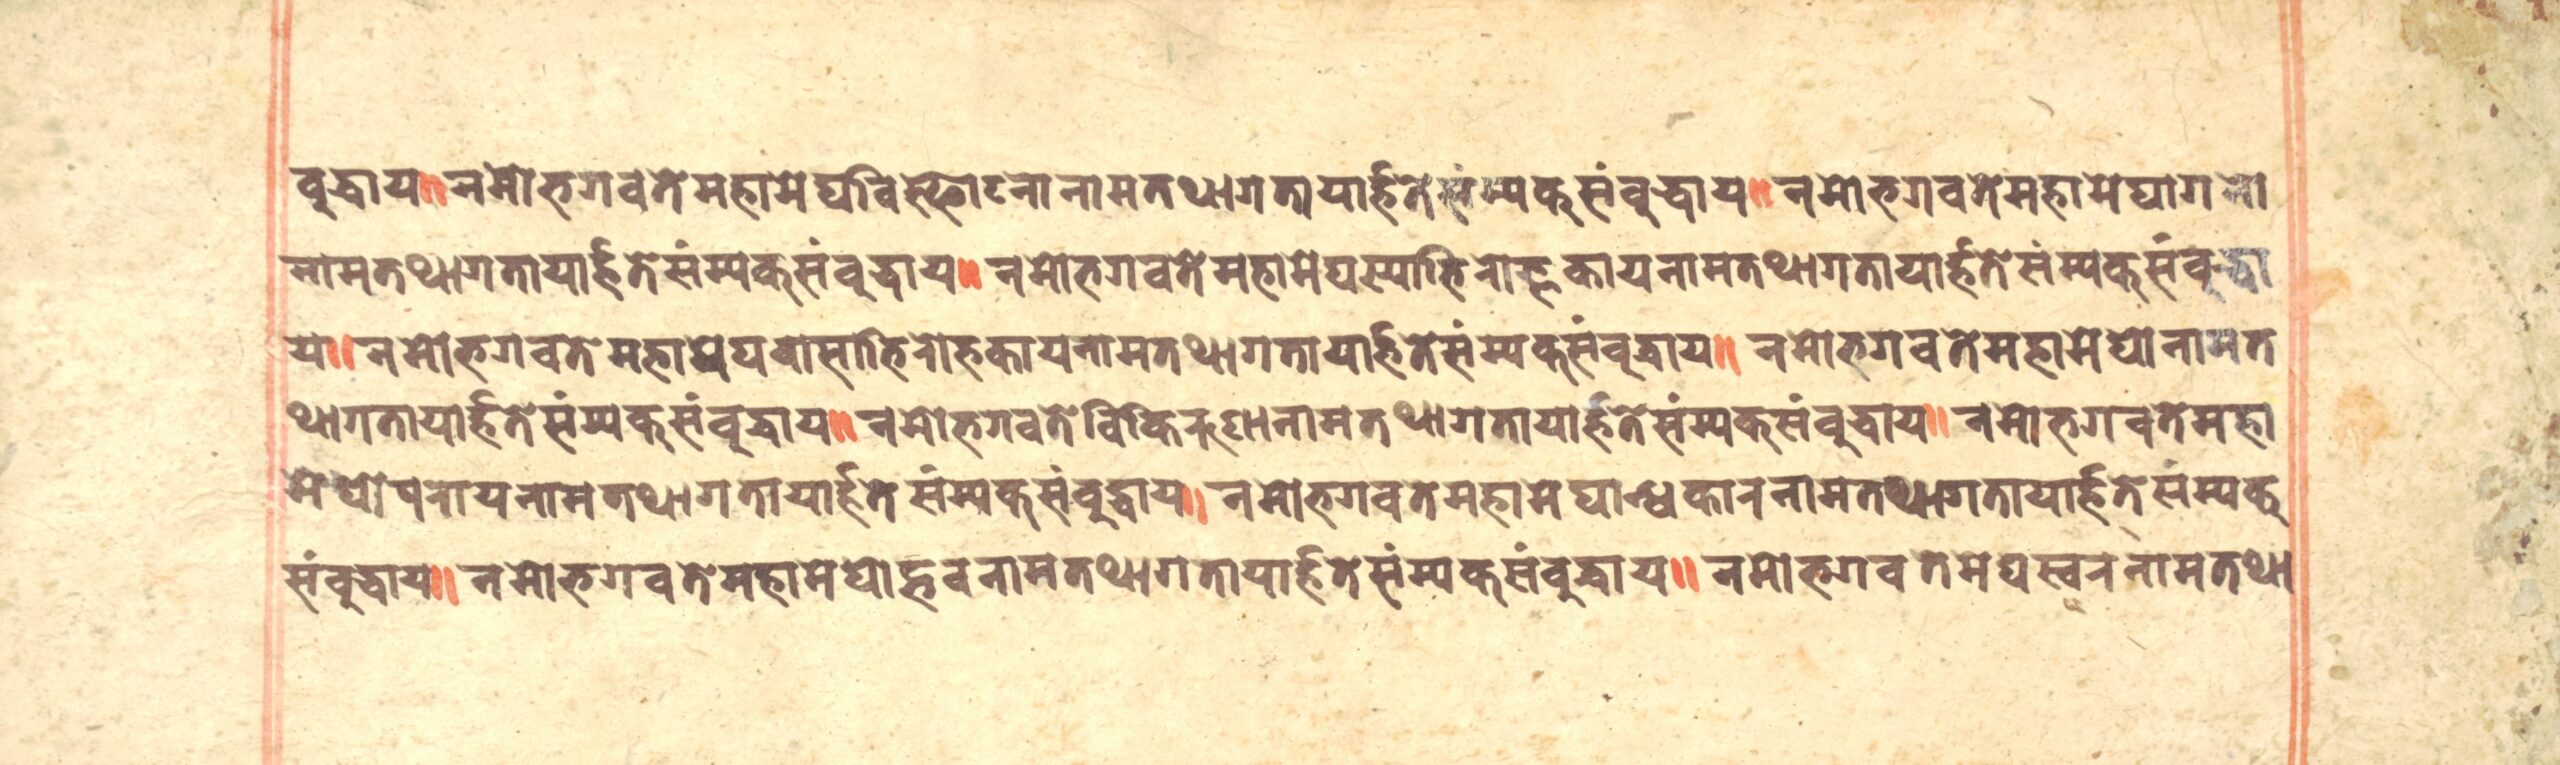 बुद्धाय॥नमोभगवतेमहामेघविस्फोटनोनामतथागतायार्हतेसंम्यक्संबुद्धाय॥नमोभगवतेमहामेघागमो
नामतथागतायार्हतेसंम्यक्संबुद्धाय॥नमोभगवतेमहामेघस्याभिरोहकायनामतथागतायार्हतेसंम्यक्संबुद्धा
य॥नमोभगवतेमहामेघवासाभिरोहकायनामतथागतायार्हतेसंम्यक्संबुद्धाय॥नमोभगवतेमहामेघोनामत
थागतायार्हतेसंम्यक्संबुद्धाय॥नमोभगवतेविकिरणोनामतथागतायार्हतेसंम्यक्संबुद्धाय॥नमोभगवतेमहा
मेघोषरायनामतथागतायार्हतेसंम्यक्संबुद्धाय॥नमोभगवतेमहामेघान्धकारनामतथागतायार्हतेसंम्यक्
संबुद्धाय॥नमोभगवतेमहामेघोद्भवनामतथागतायार्हतेसंम्यक्संबुद्धाय॥नमोभगवतेमेघस्वरनामतथा